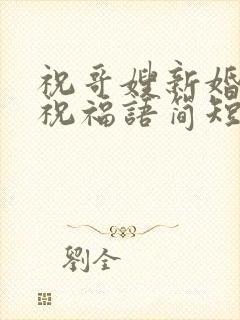 祝哥嫂新婚
祝福語简短
劉全